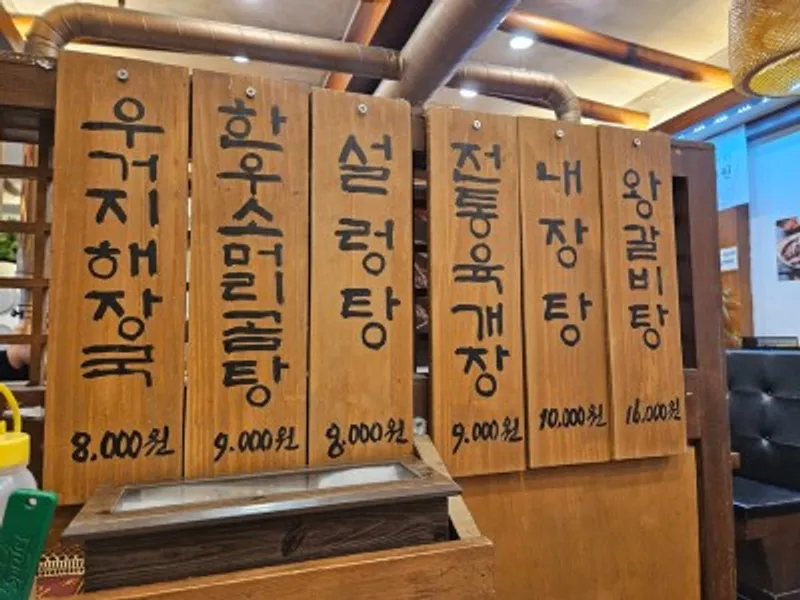 우거지해장국
8.000원
한우소머리곰탕
9.000원
설렁탕
8.000원
전통육개장
9.000원
내장탕
10.000원
왕갈비탕
16.000원